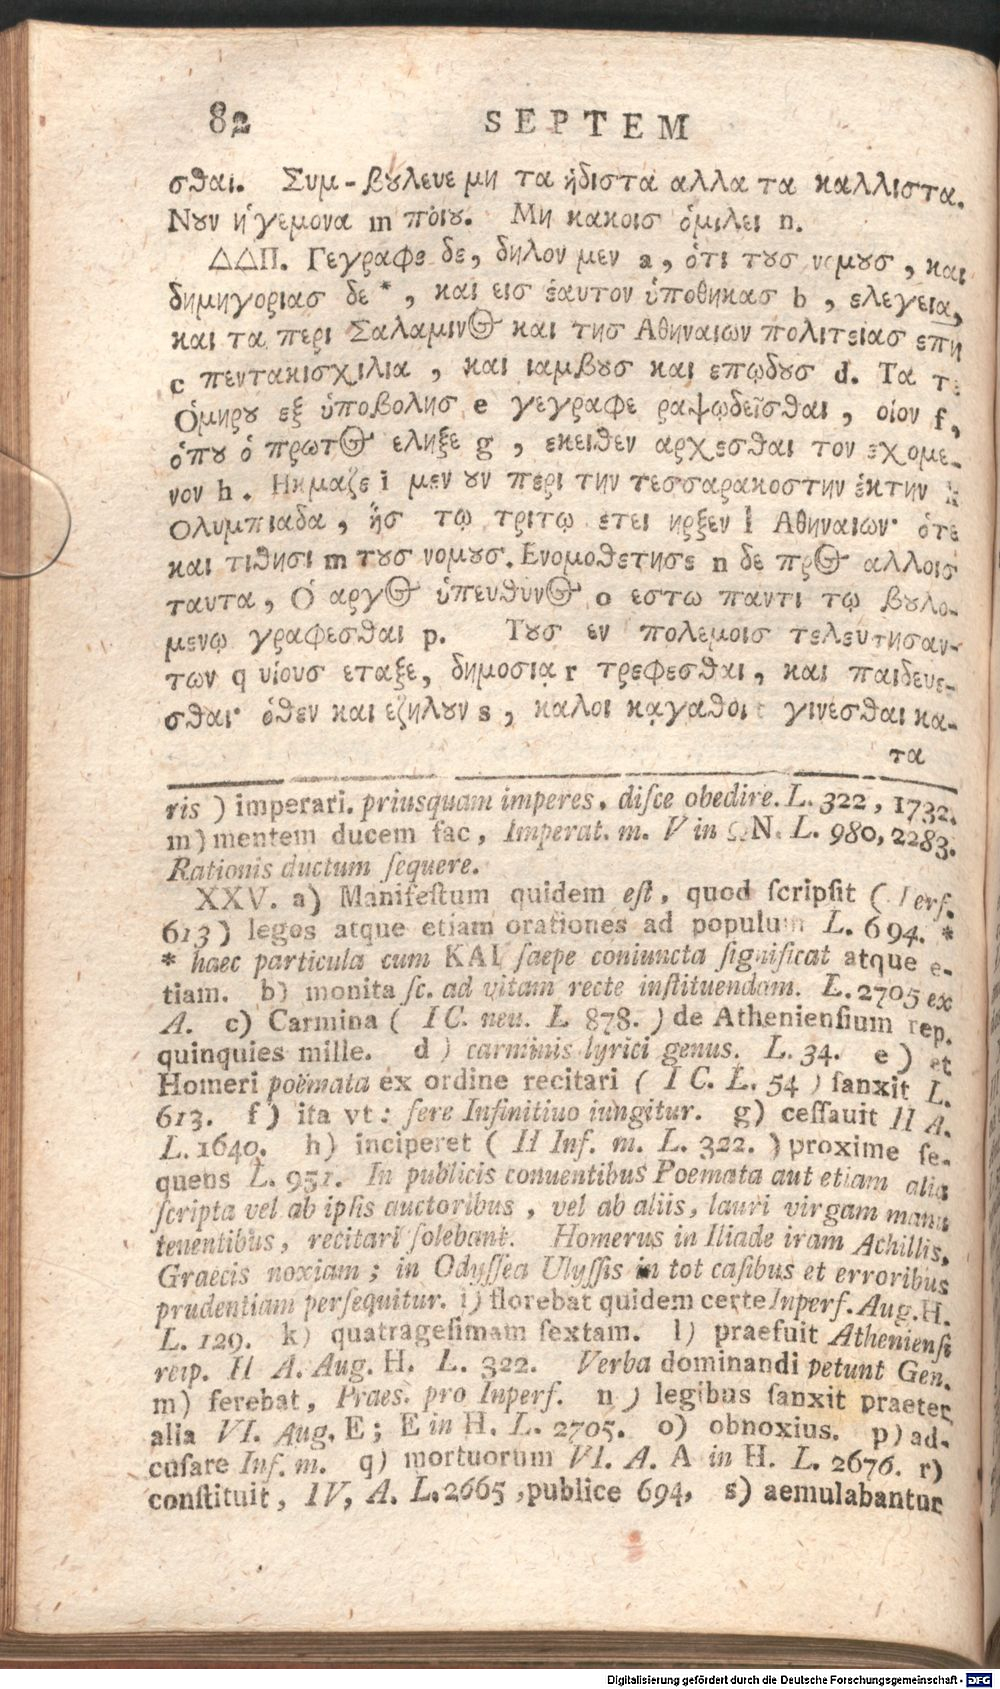 82 SEPTEM
σθαι. Συμ-βȣλευε μη τα ἡδιστα αλλα τα καλλιστα.
Νουν ἡγεμονα m ποιȣ. Μη κακοισ ὁμιλει n.
ΔΔΠ. Γεγραφε δε, δηλον μεν a, ὁτι τȣσ νομȣσ, και
δημηγοριασ δε *, και εισ ἑαυτον ὑποθηκασ b, ελεγεια,
και τα περι Σαλαμινος και τησ Αθηναιων πολιτειασ επη
c πεντακισχιλια, και ιαμβȣσ και επῳδȣσ d. Τα τε
Ὁμηρȣ εξ ὑποβολησ e γεγραφε ραψῳδεῖσθαι, οἱον f,
ὁπȣ ὁ πρωτος εληξε g, εκειθεν αρχεσθαι τον εχομε-
νον h. Ηκμαζε i μεν ȣν περι την τεσσαρακοστην ἑκτην k
Ολυμπιαδα, ἡσ τῳ τριτῳ ετει ηρξεν l Αθηναιων· ὁτε
και τιθησι m τȣσ νομȣσ. Ενομοθετησε n δε προς αλλοισ
ταυτα, Ὁ αργος ὑπευθυνος o εστω παντι τῳ βȣλο-
μενῳ γραφεσθαι p. Τȣσ εν πολεμοισ τελευτησαν-
των q υἱουσ εταξε, δημοσιᾳ r τρεφεσθαι, και παιδευε-
σθαι· ὁθεν και εζηλȣν s, καλοι κᾳγαθοι t γινεσθαι κα-
τα
ris) imperari. priusquam imperes, diſce obedire. L. 322, 1732.
m) mentem ducem fac, Imperat. m. V in ΩN. L. 980, 2283.
Rationis ductum ſequere.
XXV. a) Manifeſtum quidem eſt, quod ſcripſit (Perf.
613) leges atque etiam orationes ad populum L. 694. *
* haec particula cum KAI ſaepe coniuncta ſignificat atque e-
tiam. b) monita ſc. ad vitam recte inſtituendam. L. 2705 ex
A. c) Carmina (IC. neu. L 878.) de Athenienſium rep.
quinquies mille. d) carminis lyrici genus. L. 34. e) et
Homeri poëmata ex ordine recitari (IC. L. 54) ſanxit L.
613. f) ita vt: fere Infinitiuo iungitur. g) ceſſauit II A.
L. 1640. h) inciperet (II Inf. m. L. 322.) proxime ſe-
quens L. 951. In publicis conuentibus Poemata aut etiam alia
ſcripta vel ab ipſis auctoribus, vel ab aliis, lauri virgam manu
tenentibus, recitari ſolebant. Homerus in Iliade iram Achillis,
Graecis noxiam; in Odyſſea Ulyſſis in tot caſibus et erroribus
prudentiam perſequitur. i) florebat quidem certe Inperf. Aug. H.
L. 129. k) quatrageſimam ſextam. l) praefuit Athenienſi
reip. II A. Aug. H. L. 322. Verba dominandi petunt Gen.
m) ferebat, Praes. pro Inperf. n) legibus ſanxit praeter
alia VI. Aug. E; E in H. L. 2705. o) obnoxius. p) ad-
cuſare Inf. m. q) mortuorum VI. A. A in H. L. 2676. r)
conſtituit, IV, A. L. 2665, publice 694, s) aemulabantur
Digitalisierung gefördert durch die Deutsche Forschungsgemeinschaft - DFG